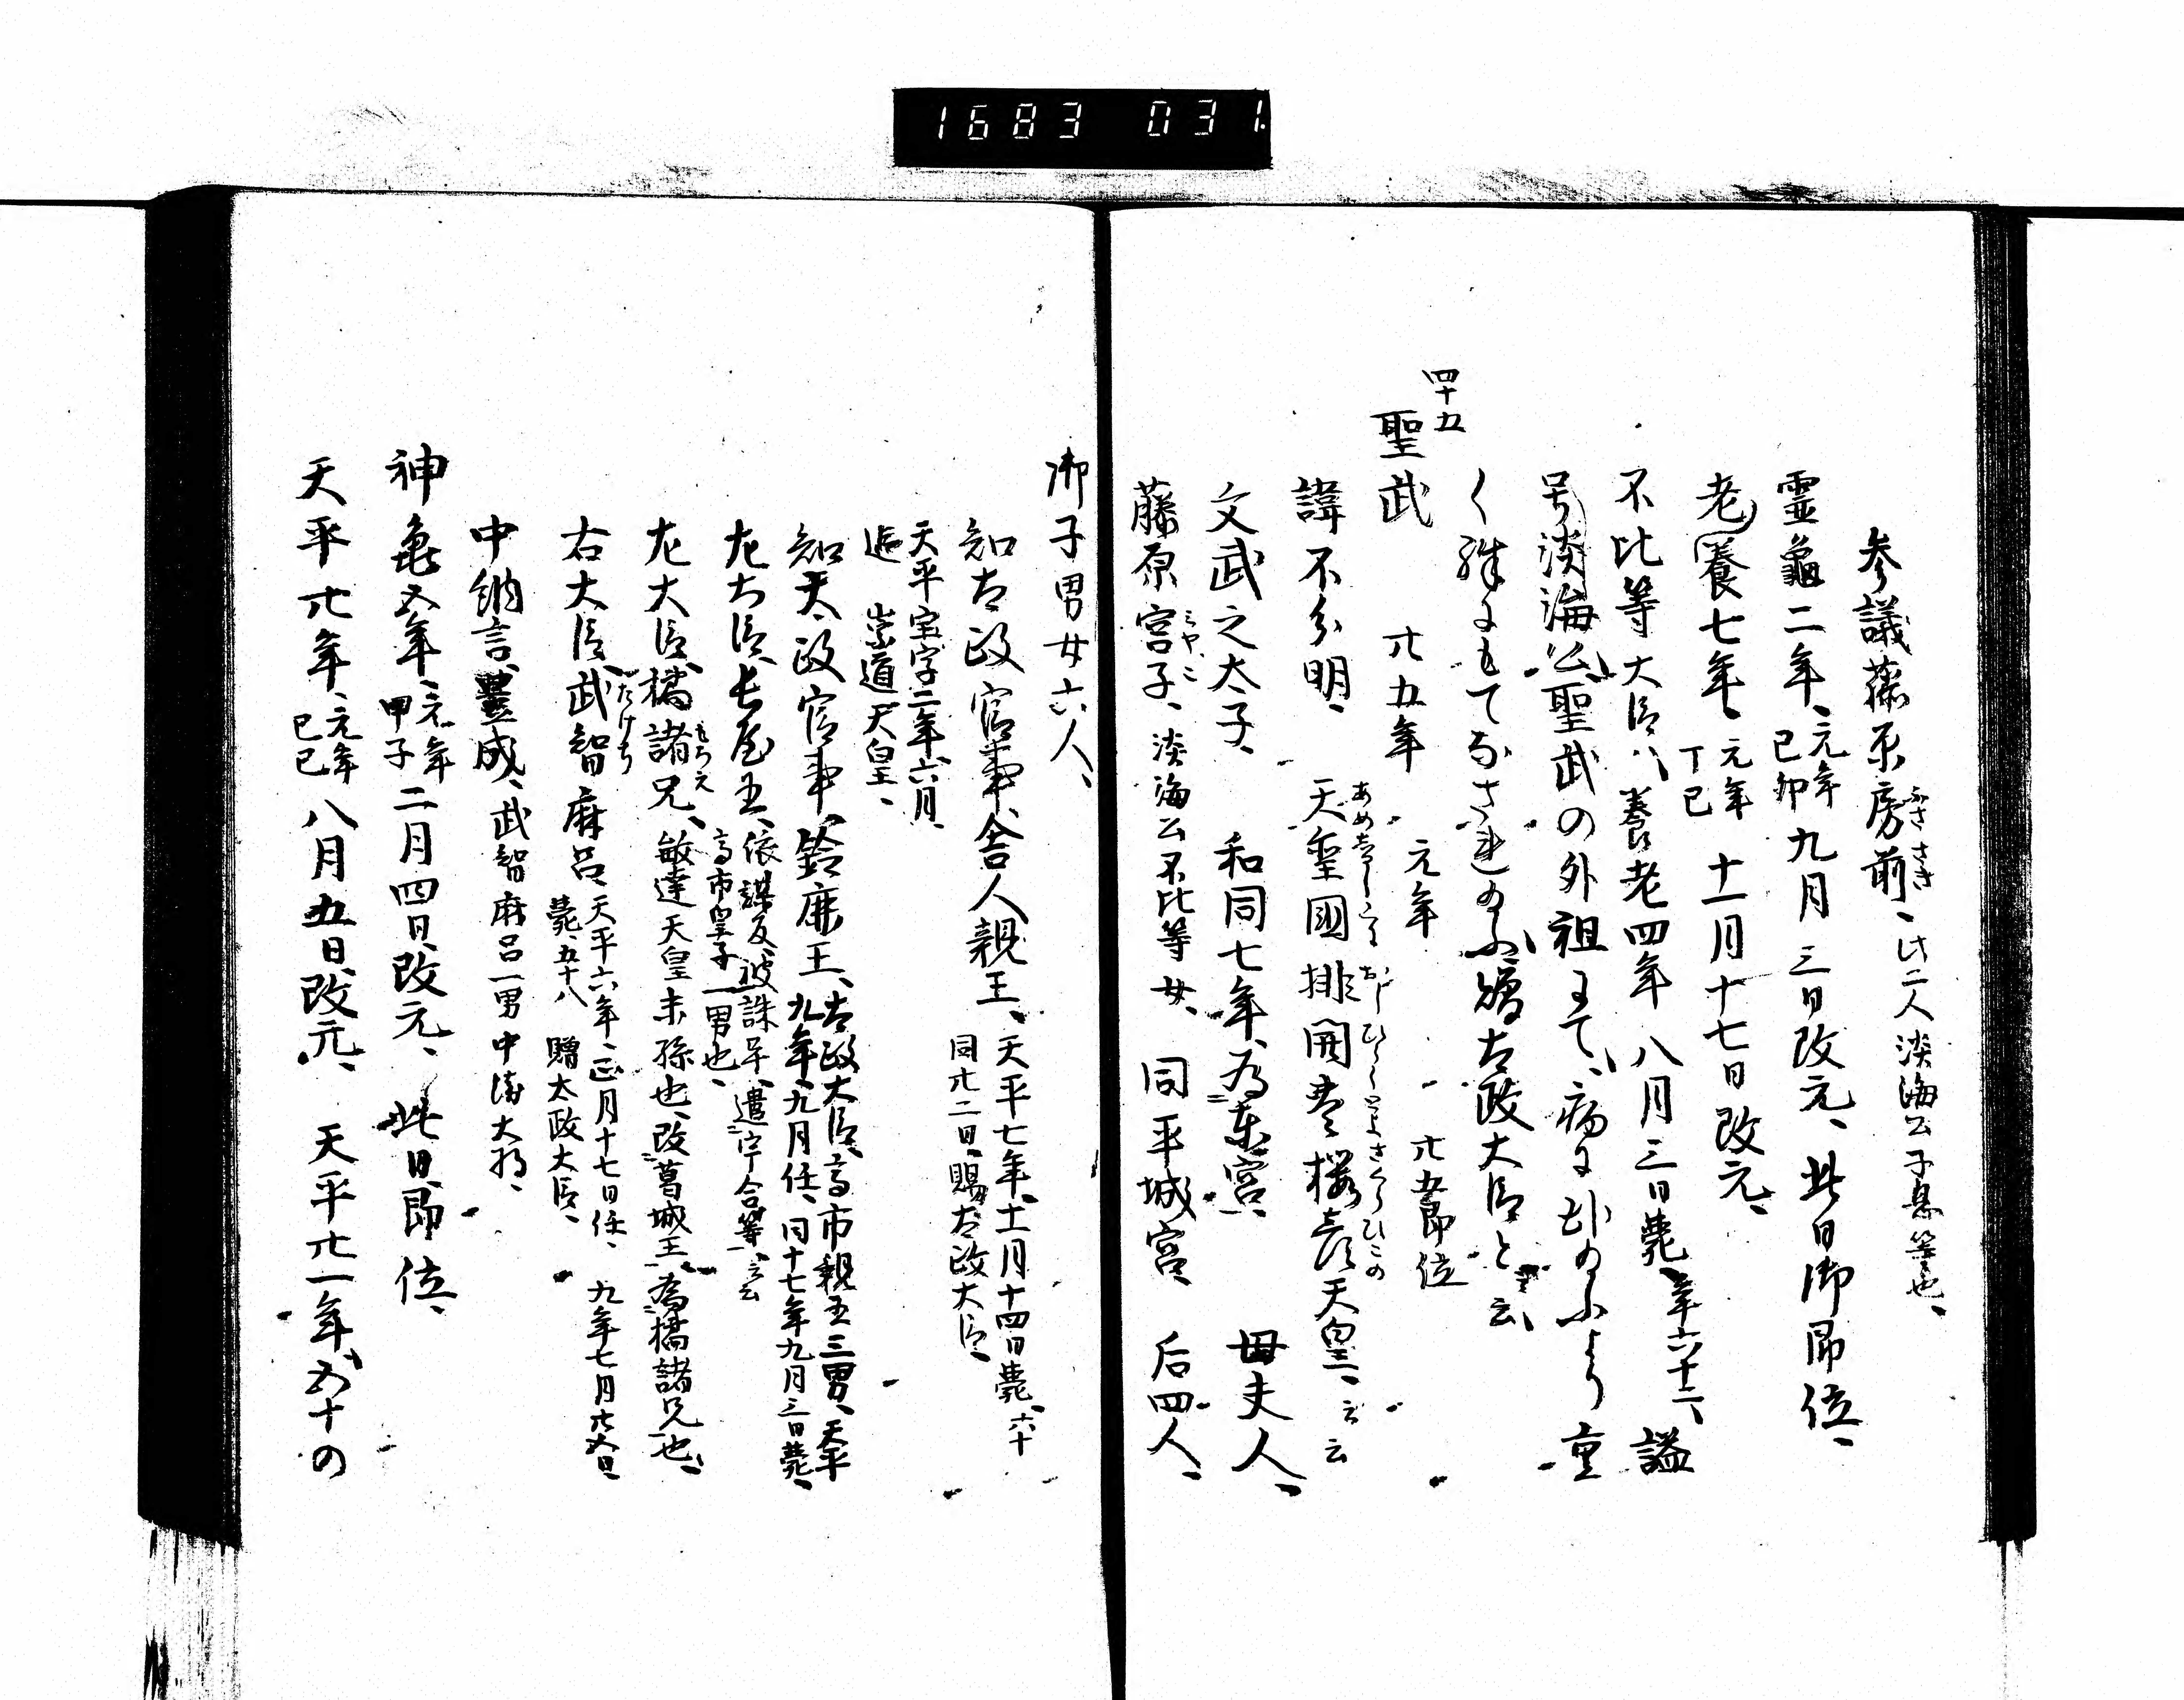 1683 031.
参議藤原房前、此二人淡海公子息等也、
ふささき
霊龜二年、元年己卯九月三日改元、此日御即位、
老養七年、元年丁巳十一月十七日改元、
不比等大臣ハ養老四年八月三日薨、年六十二、謚
号淡海公聖武の外祖にて、病に臥給ふより重
く殊にもてなされ給ふ、贈太政大臣と云、
四十五
聖武 廿五年 元年 廿五即位
諱不分明、天璽國排開豊桜彦天皇、ト云
あめしるしくに おしひらくとよさくらひこの
文武之太子、和同七年、為東宮、母夫人、
藤原宮子、淡海公不比等女、同平城宮、后四人、
ミヤコ
御子男女六人、
知太政官事舎人親王、天平七年、十一月十四日薨、六十
同廿二日賜太政大臣、
天平宝字二年六月、
追 崇道天皇、
知太政官事鈴鹿王、太政大臣、高市親王三男、天平
九年、九月任、同十七年九月三日薨、
左大臣、長屋王、依謀反、被誅畢、遣宇合等、云云
高市皇子一男也、
左大臣橘諸兄、敏達天皇末孫也、改葛城王、為橘諸兄也、
もろえ
右大臣武智麻呂、天平六年、正月十七日任、九年七月廿五日
たけち
薨、五十八 贈太政大臣、
中納言、豊成、武智麻呂一男 中衛大将、
神亀五年、元年甲子二月四日改元、此日即位、
天平廿年、元年己巳八月五日改元、天平廿一年、五十の